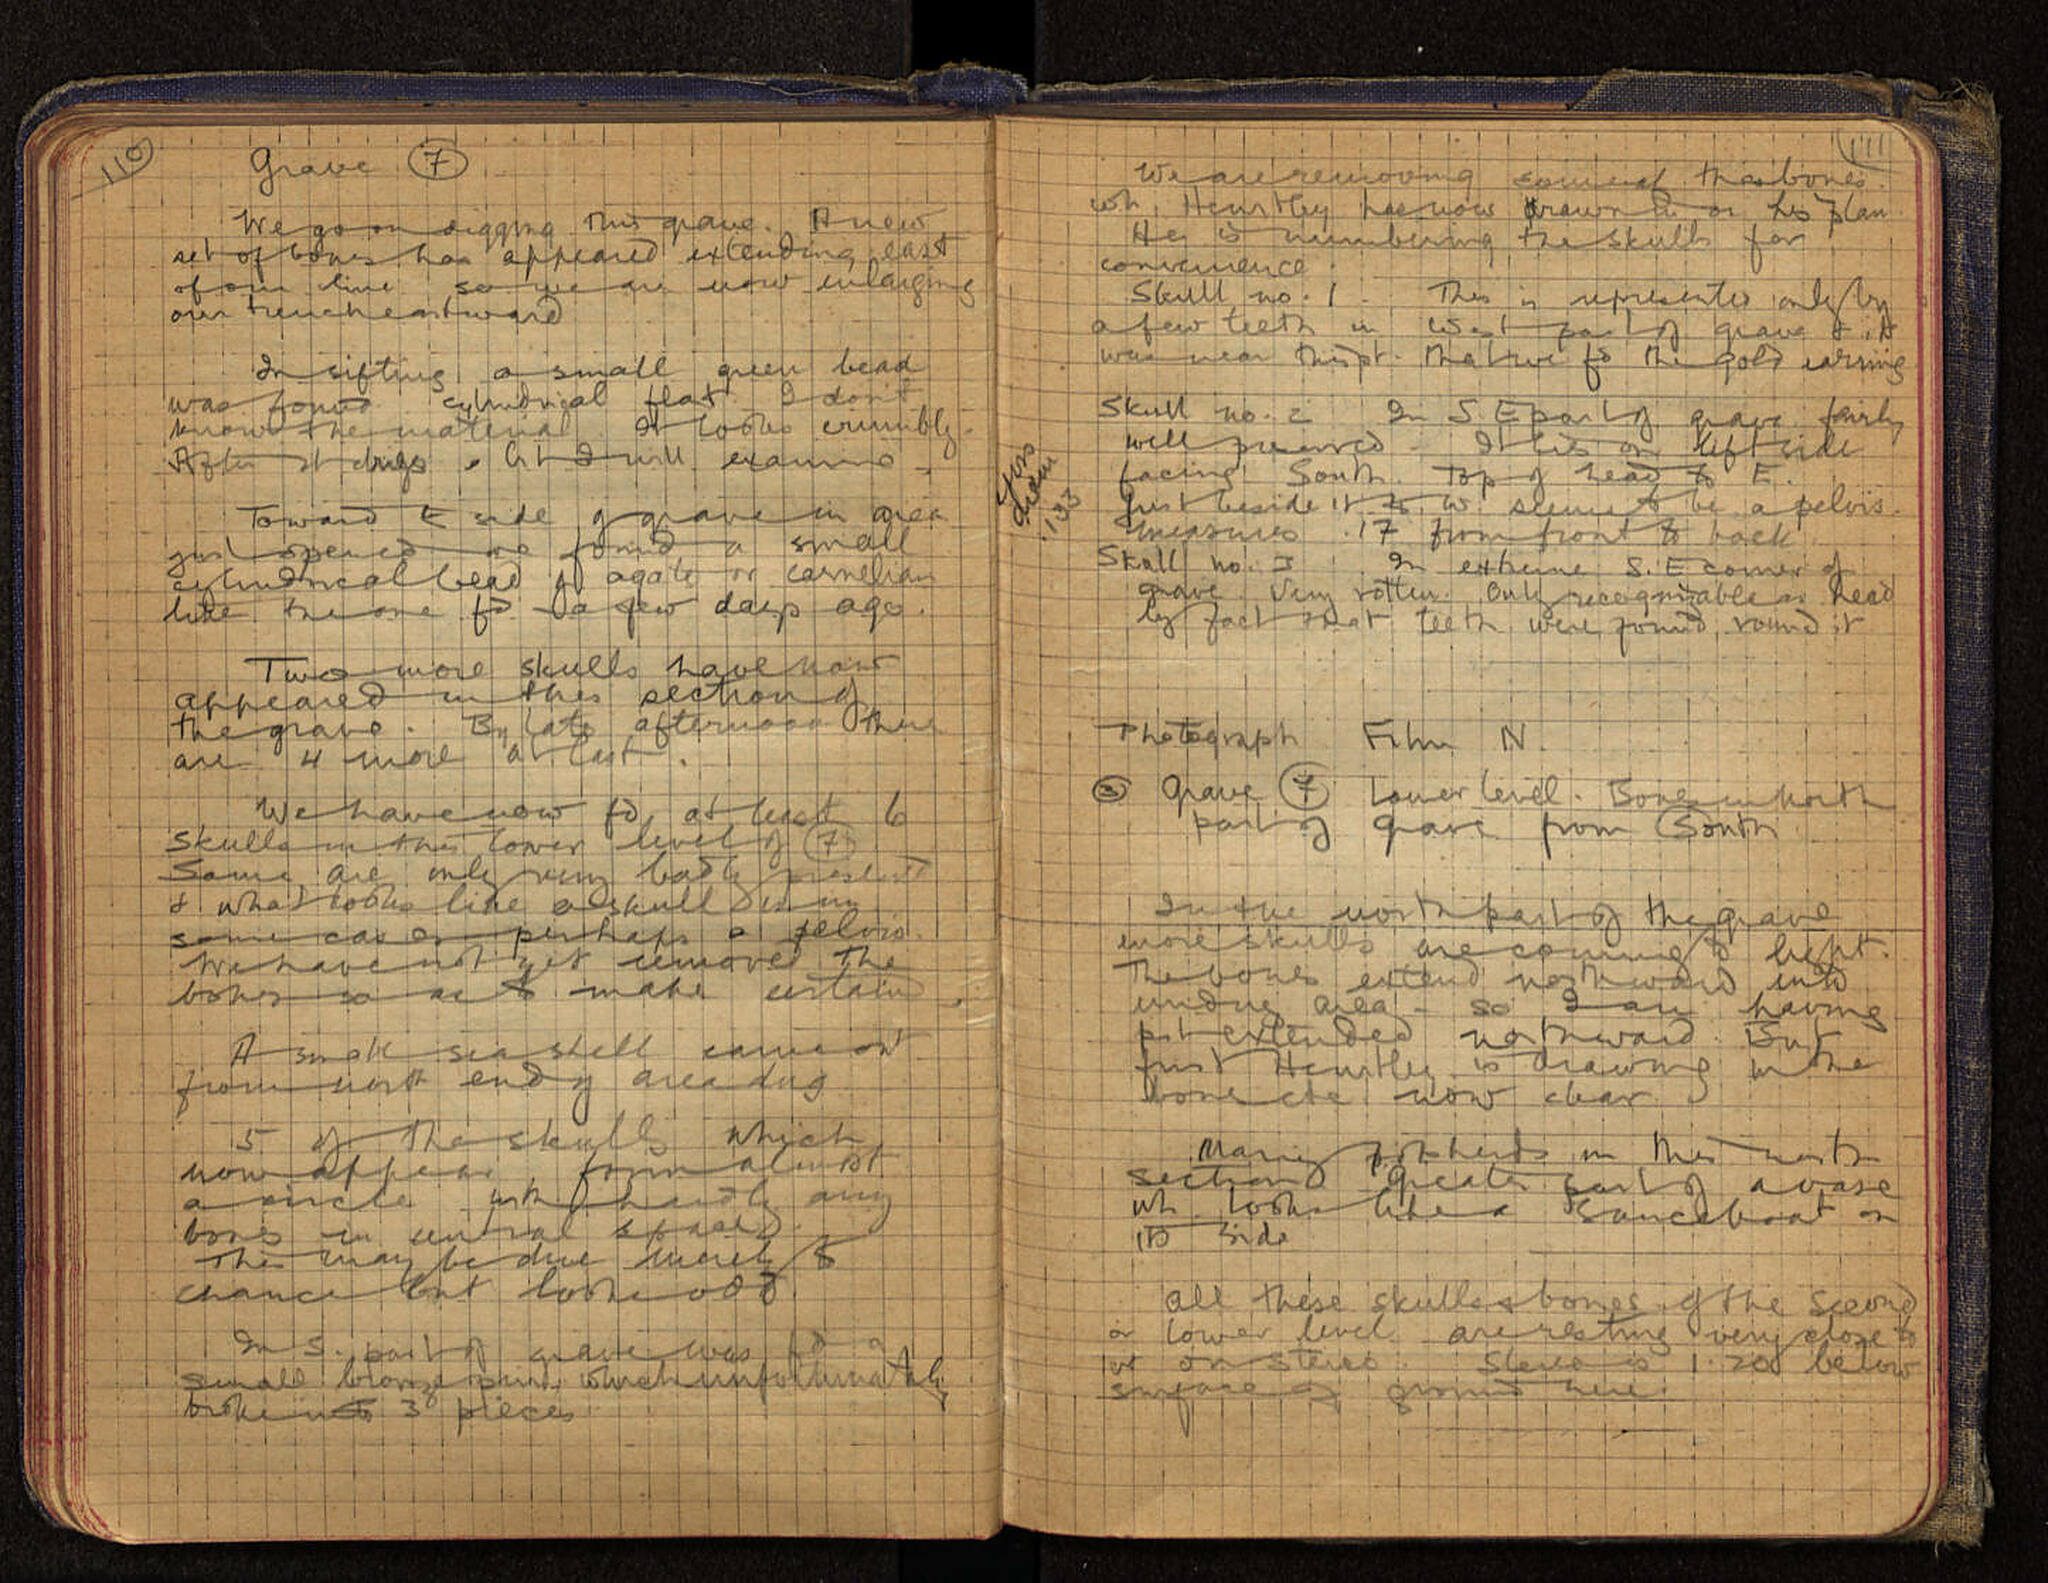 110
Grave (7)
We go on digging this grave. A new
set of bones has appeared extending east
of our line so we are now enlarging
our trench eastward
In sifting a small green bead
was found cylindrical flat I don't
know the material It looks crumbly.
After it drys a bit I will examine
Toward E side of grave in area
just opened we found a small
cylindrical bead of agate or carnelian
like the one fd a few days ago.
Two more skulls have now
appeared in this section of
the grave. By late afternoon there
are 4 more at least.
We have now fd at least 6
skulls in this lower level of (7)
Some are only very badly preserved
& what looks like a skull is in
some cases perhaps a pelvis.
We have not yet removed the
bones so as to make certain.
A small sea shell came out
from north end of area dug
5 of the skulls which
now appear form almost
a circle with hardly any
bones in central space
This may be due merely to
chance but looks odd
In S. part of grave was fd a
small bronze pin which unfortunately
broke into 3 pieces
111
We are removing some of the bones
wh. Heurtley has now drawn in on his plan
He is numbering the skulls for
convenience.
Skull no. 1. This is represented only by
a few teeth in West part of grave & it
was near this pt. that we fd the gold earring
Skull no. 2 In S E part of grave fairly
well preserved. It lies on left side
facing South. Top of head to E.
Just beside it to W. seems to be a pelvis.
measures .17 from front to back
diam
.133
Skull no. 3 In extreme S.E corner of
grave. Very rotten. Only recognizable as head
by fact that teeth were found round it
Photograph Film N.
(3) Grave (7) Lower level. Bones in North
part of grave from South
In the north part of the grave
more skulls are coming to light.
The bones extend northward into
undug area so I am having
pit extended northward. But
first Heurtley is drawing in the
bones etc now clear
Many potsherds in this north
section Greater part of a vase
wh. looks like a Sauceboat on
its side
All these skulls & bones of the second
or lower level are resting very close to
or on stereo. Stereo is 1.20 below
surface of ground here.